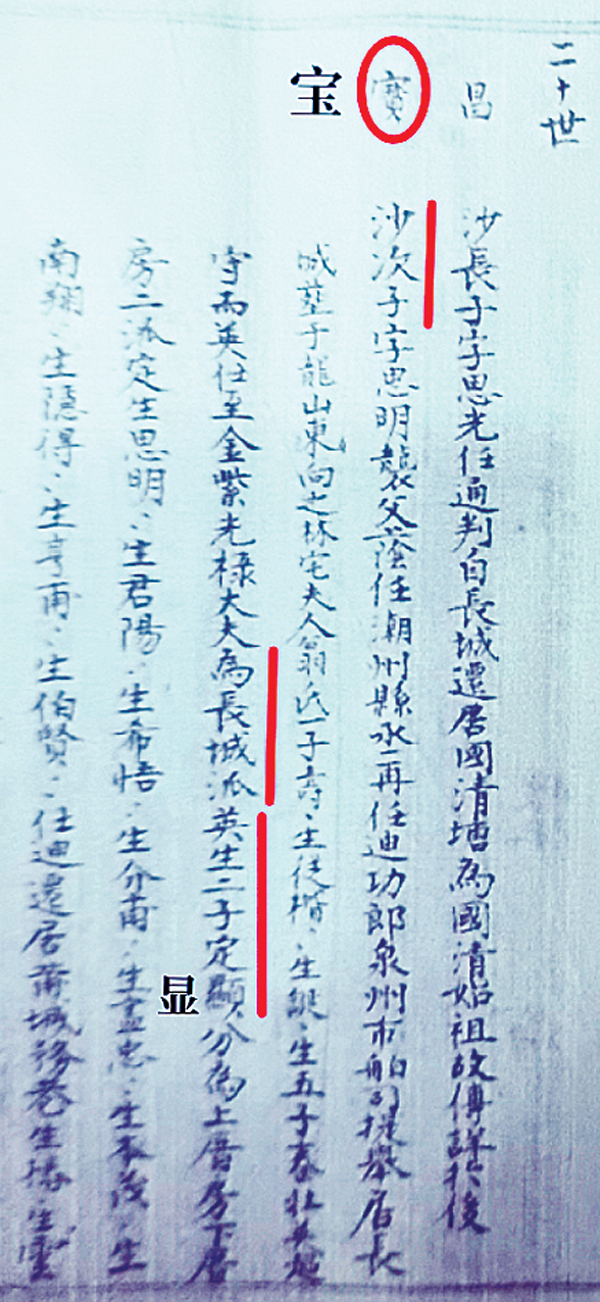 二十世
昌
沙長子字思光任通判自長城遷居國清塘為國清始祖故傳詳於後
寶
宝
沙次子字思明襲父蔭任潮州縣丞再任迪功郎泉州市舶司提舉居長
城塟于龍山東向之林宅夫人翁氏一子壽〻生從楷〻生 〻生五子春壯 英
守而英仕至金紫光祿大夫為長城派英生二子定顯分為上厝房下厝
显
房二派定生思明〻生君陽〻生希悟〻生介甫〻生孟忠〻生本茂〻生
南翔〻生隱得〻生亨甫〻生伯賢〻仕迪遷居莆城後巷生 〻生雲